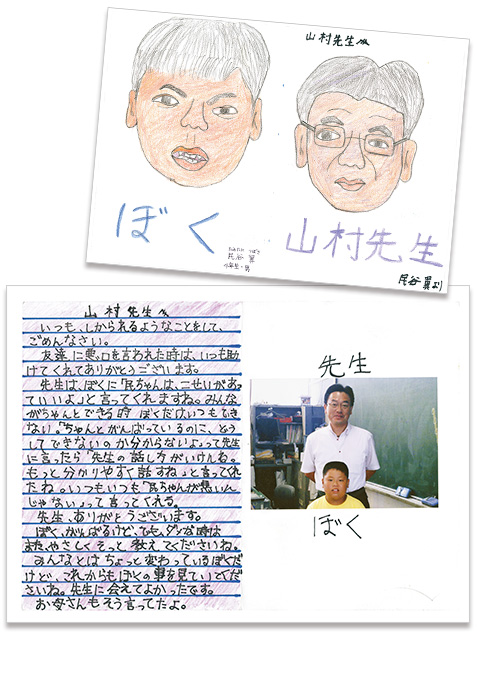 山村先生へ
ぼく
山村先生
4年生・男
山村先生へ
いつも、しかられるようなことをして、
ごめんなさい。
友達に悪口を言われた時は、いつも助
けてくれてありがとうございます。
先生は、ぼくに「民ちゃんは、こせいがあっ
ていいよ」と言ってくれますね。みんな
がちゃんとできる時ぼくだけ、いつもでき
ない。「ちゃんとがんばっているのに、どう
してできないのか分からないよ」って先生
に言ったら「先生の話し方がいけんね。
もっと分かりやすく話すね」と言ってくれ
たね。いつもいつも「民ちゃんが悪いん
じゃない」って言ってくれる。
先生、ありがとうございます。
ぼく、がんばるけど、でも、ダメな時は
また、やさしくそっと教えてくださいね。
みんなとはちょっと変わっているぼくだ
けど、これからもぼくの事を見ていてくだ
さいね。先生に会えてよかったです。
お母さんもそう言ってたよ。
先生
ぼく